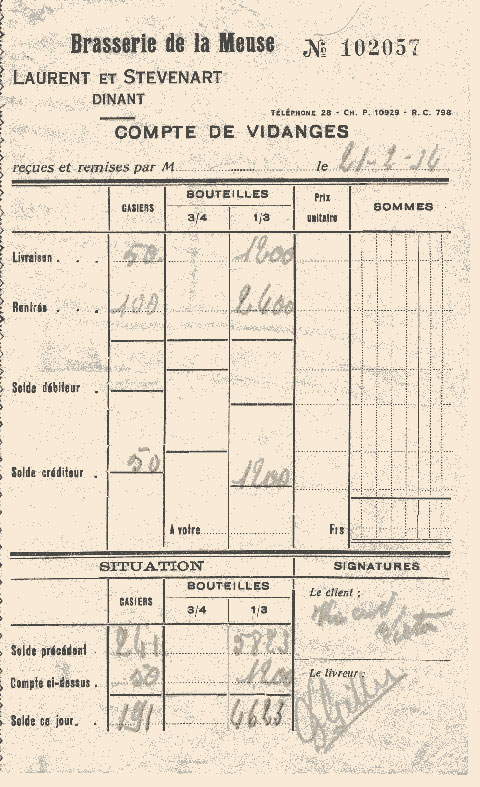 Brasserie de la Meuse № 102057
LAURENT ET STEVENART
DINANT
TÉLÉPHONE 28 - CH. P. 10929 - R. C. 798
COMPTE DE VIDANGES
reçues et remises par M. le 21-2-36
CASIERS BOUTEILLES Prix unitaire SOMMES
3/4 1/3
Livraison . . . 50 1200
Rentrés . . . 100 2400
Solde débiteur .
Solde créditeur . 50 1200
A votre Frs
SITUATION SIGNATURES
CASIERS BOUTEILLES Le client :
3/4 1/3
Solde précédent 241 5823
Compte ci-dessus . 50 1200 Le livreur :
Solde ce jour. . 191 4623